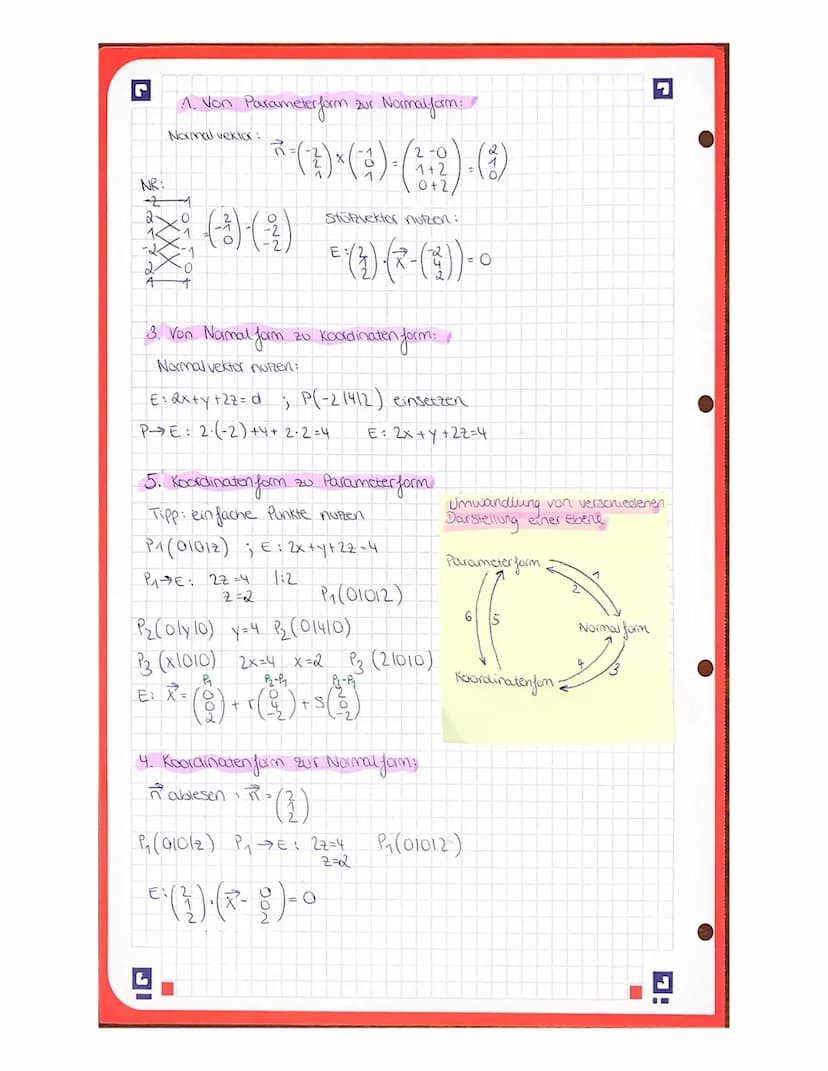 1. Von Parameterform zur Normalform:
Normalvektor: n⃗ = (-2 2 1) × (-1 0 1) = (2-0 1+2 0+2) = (2 1 0)
NR:
-2 1
2 0
1 1
-2 -1
2 0
1 1
= (2 -1 0) - (0 -2 -2)
Stützvektor nutzen:
E: (2 1 2) · (x⃗ - (-2 4 2)) = 0
3. Von Normalform zu Koordinatenform:
Normalvektor nutzen:
E: 2x+y+2z=d ; P(-2|4|2) einsetzen
P→E: 2·(-2)+4+2·2=4 E: 2x+y+2z=4
5. Koordinatenform zu Parameterform
Tipp: einfache Punkte nutzen
P1(0|0|z) ; E: 2x+y+2z=4
P1→E: 2z=4 |:2
z=2 P1(0|0|2)
P2(0|y|0) y=4 P2(0|4|0)
P3(x|0|0) 2x=4 x=2 P3(2|0|0)
P1 P2-P1 P3-P1
E: x⃗ = (0 0 2) + r(0 4 -2) + s(2 0 -2)
Umwandlung von verschiedenen
Darstellung einer Ebene
Parameterform
1
2
6 5
Normalform
4
3
Koordinatenform
4. Koordinatenform zur Normalform:
n⃗ ablesen, n⃗ = (2 1 2)
P1(0|0|z) P1→E: 2z=4 P1(0|0|2)
z=2
E: (2 1 2) · (x⃗ - 0 0 2) = 0